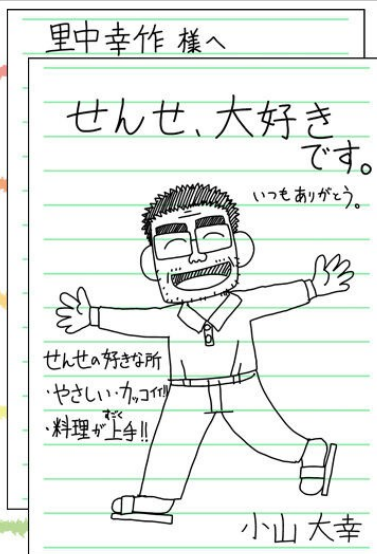 里中幸作 様へ
せんせ、大好き
です。
いつもありがとう。
せんせの好きな所
・やさしい・カッコイイ!!
・料理がすごく上手!!
小山 大幸